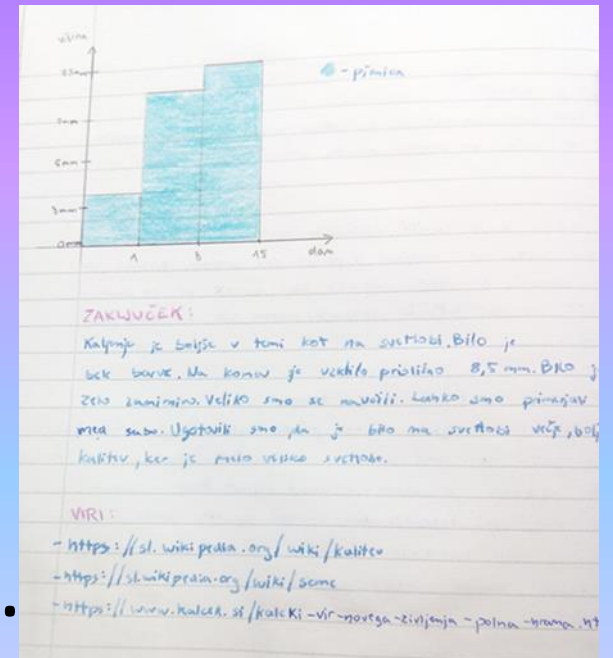 višina
8,5mm
7mm
5mm
3mm
0mm
1 8 15 dan
- pšenica
ZAKLJUČEK:
Kaljenje je boljše v temi kot na svetlobi. Bilo je
bele barve. Na koncu je visoko približno 8,5 mm. Bilo j
zelo zanimivo. Veliko smo se naučili. Lahko smo primerjav
med sabo. Ugotovili smo da je bilo na svetlobi večje, bolj
kalitev, ker je imelo veliko svetlobe.
VIRI:
- https://sl.wikipedia.org/wiki/kalitev
- https://sl.wikipedia.org/wiki/seme
- https://www.kalcek.si/kalcki-vir-novega-zivljenja-polna-hrana.ht